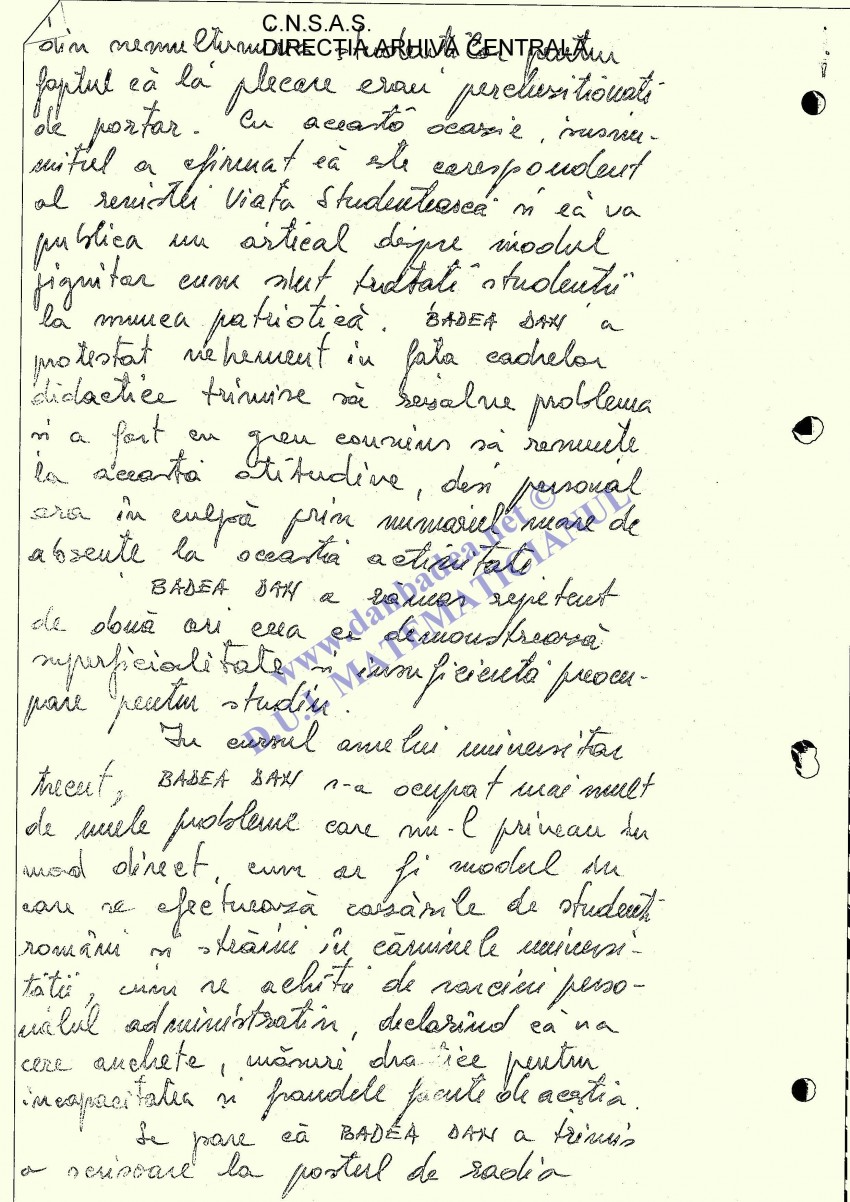 C.N.S.A.S.
DIRECȚIA ARHIVA CENTRALĂ
din nemulțumirea studenților pentru
faptul că la plecare erau percheziționați
de portar. Cu această ocazie, susnu-
mitul a afirmat că este corespondent
al revistei Viața Studențească și că va
publica un articol despre modul
jignitor cum sînt tratați studenții
la munca patriotică. BADEA DAN a
protestat vehement în fața cadrelor
didactice trimise să rezolve problema
și a fost cu greu convins să renunțe
la această atitudine, deși personal
era în culpă prin numărul mare de
absențe la această activitate
BADEA DAN a rămas repetent
de două ori ceea ce demonstrează
superficialitate și insuficientă preocu-
pare pentru studiu.
În cursul anului universitar
trecut, BADEA DAN s-a ocupat mai mult
de unele probleme care nu-l priveau în
mod direct, cum ar fi modul în
care se efectuează cazările de studenți
români și străini în căminele universi-
tății, cum se achită de sarcini perso-
nalul administrativ, declarînd că va
cere anchete, măsuri drastice pentru
incapacitatea și fraudele făcute de aceștia.
Se pare că BADEA DAN a trimis
o scrisoare la postul de radio
www.danbadea.net ©
D.U.I. MATEMATICIANUL